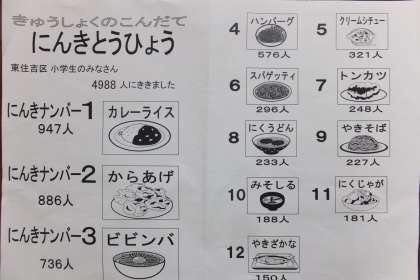 きゅうしょくのこんだて
にんきとうひょう
東住吉区 小学生のみなさん
4988 人にききました
にんきナンバー1
947人
カレーライス
にんきナンバー2
886人
からあげ
にんきナンバー3
736人
ビビンバ
4
ハンバーグ
576人
5
クリームシチュー
321人
6
スパゲッティ
296人
7
トンカツ
248人
8
にくうどん
233人
9
やきそば
227人
10
みそしる
188人
11
にくじゃが
181人
12
やきざかな
150人